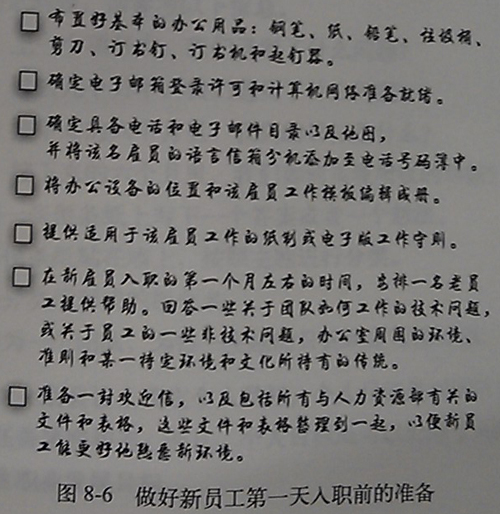 □ 布置好基本的办公用品：钢笔、纸、铅笔、垃圾桶、
剪刀、订书钉、订书机和起钉器。
□ 确定电子邮箱登录许可和计算机网络准备就绪。
□ 确定具备电话和电子邮件目录以及地图，
并将该名雇员的语言信箱分机添加至电话号码簿中。
□ 将办公设备的位置和该雇员工作模板编辑成册。
□ 提供适用于该雇员工作的纸制或电子版工作守则。
□ 在新雇员入职的第一个月左右的时间，安排一名老员
工提供帮助。回答一些关于团队如何工作的技术问题，
或关于员工的一些非技术问题，办公室周围的环境、
准则和某一特定环境和文化所特有的传统。
□ 准备一封欢迎信，以及包括所有与人力资源部有关的
文件和表格，这些文件和表格整理到一起，以便新员
工能更好地熟悉新环境。
图 8-6 做好新员工第一天入职前的准备